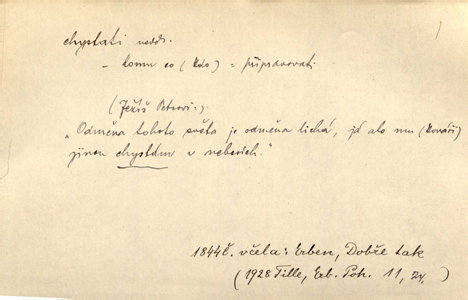 chystati nedok.
– komu co (koho) = připravovati
(Ježíš Petrovi:)
„Odměna tohoto světa je odměna lichá, já ale mu (kováři)
jinou chystám v nebesích."
1844 Č. včela: Erben, Dobře tak
(1928 Tille, Erb. Poh. 11,